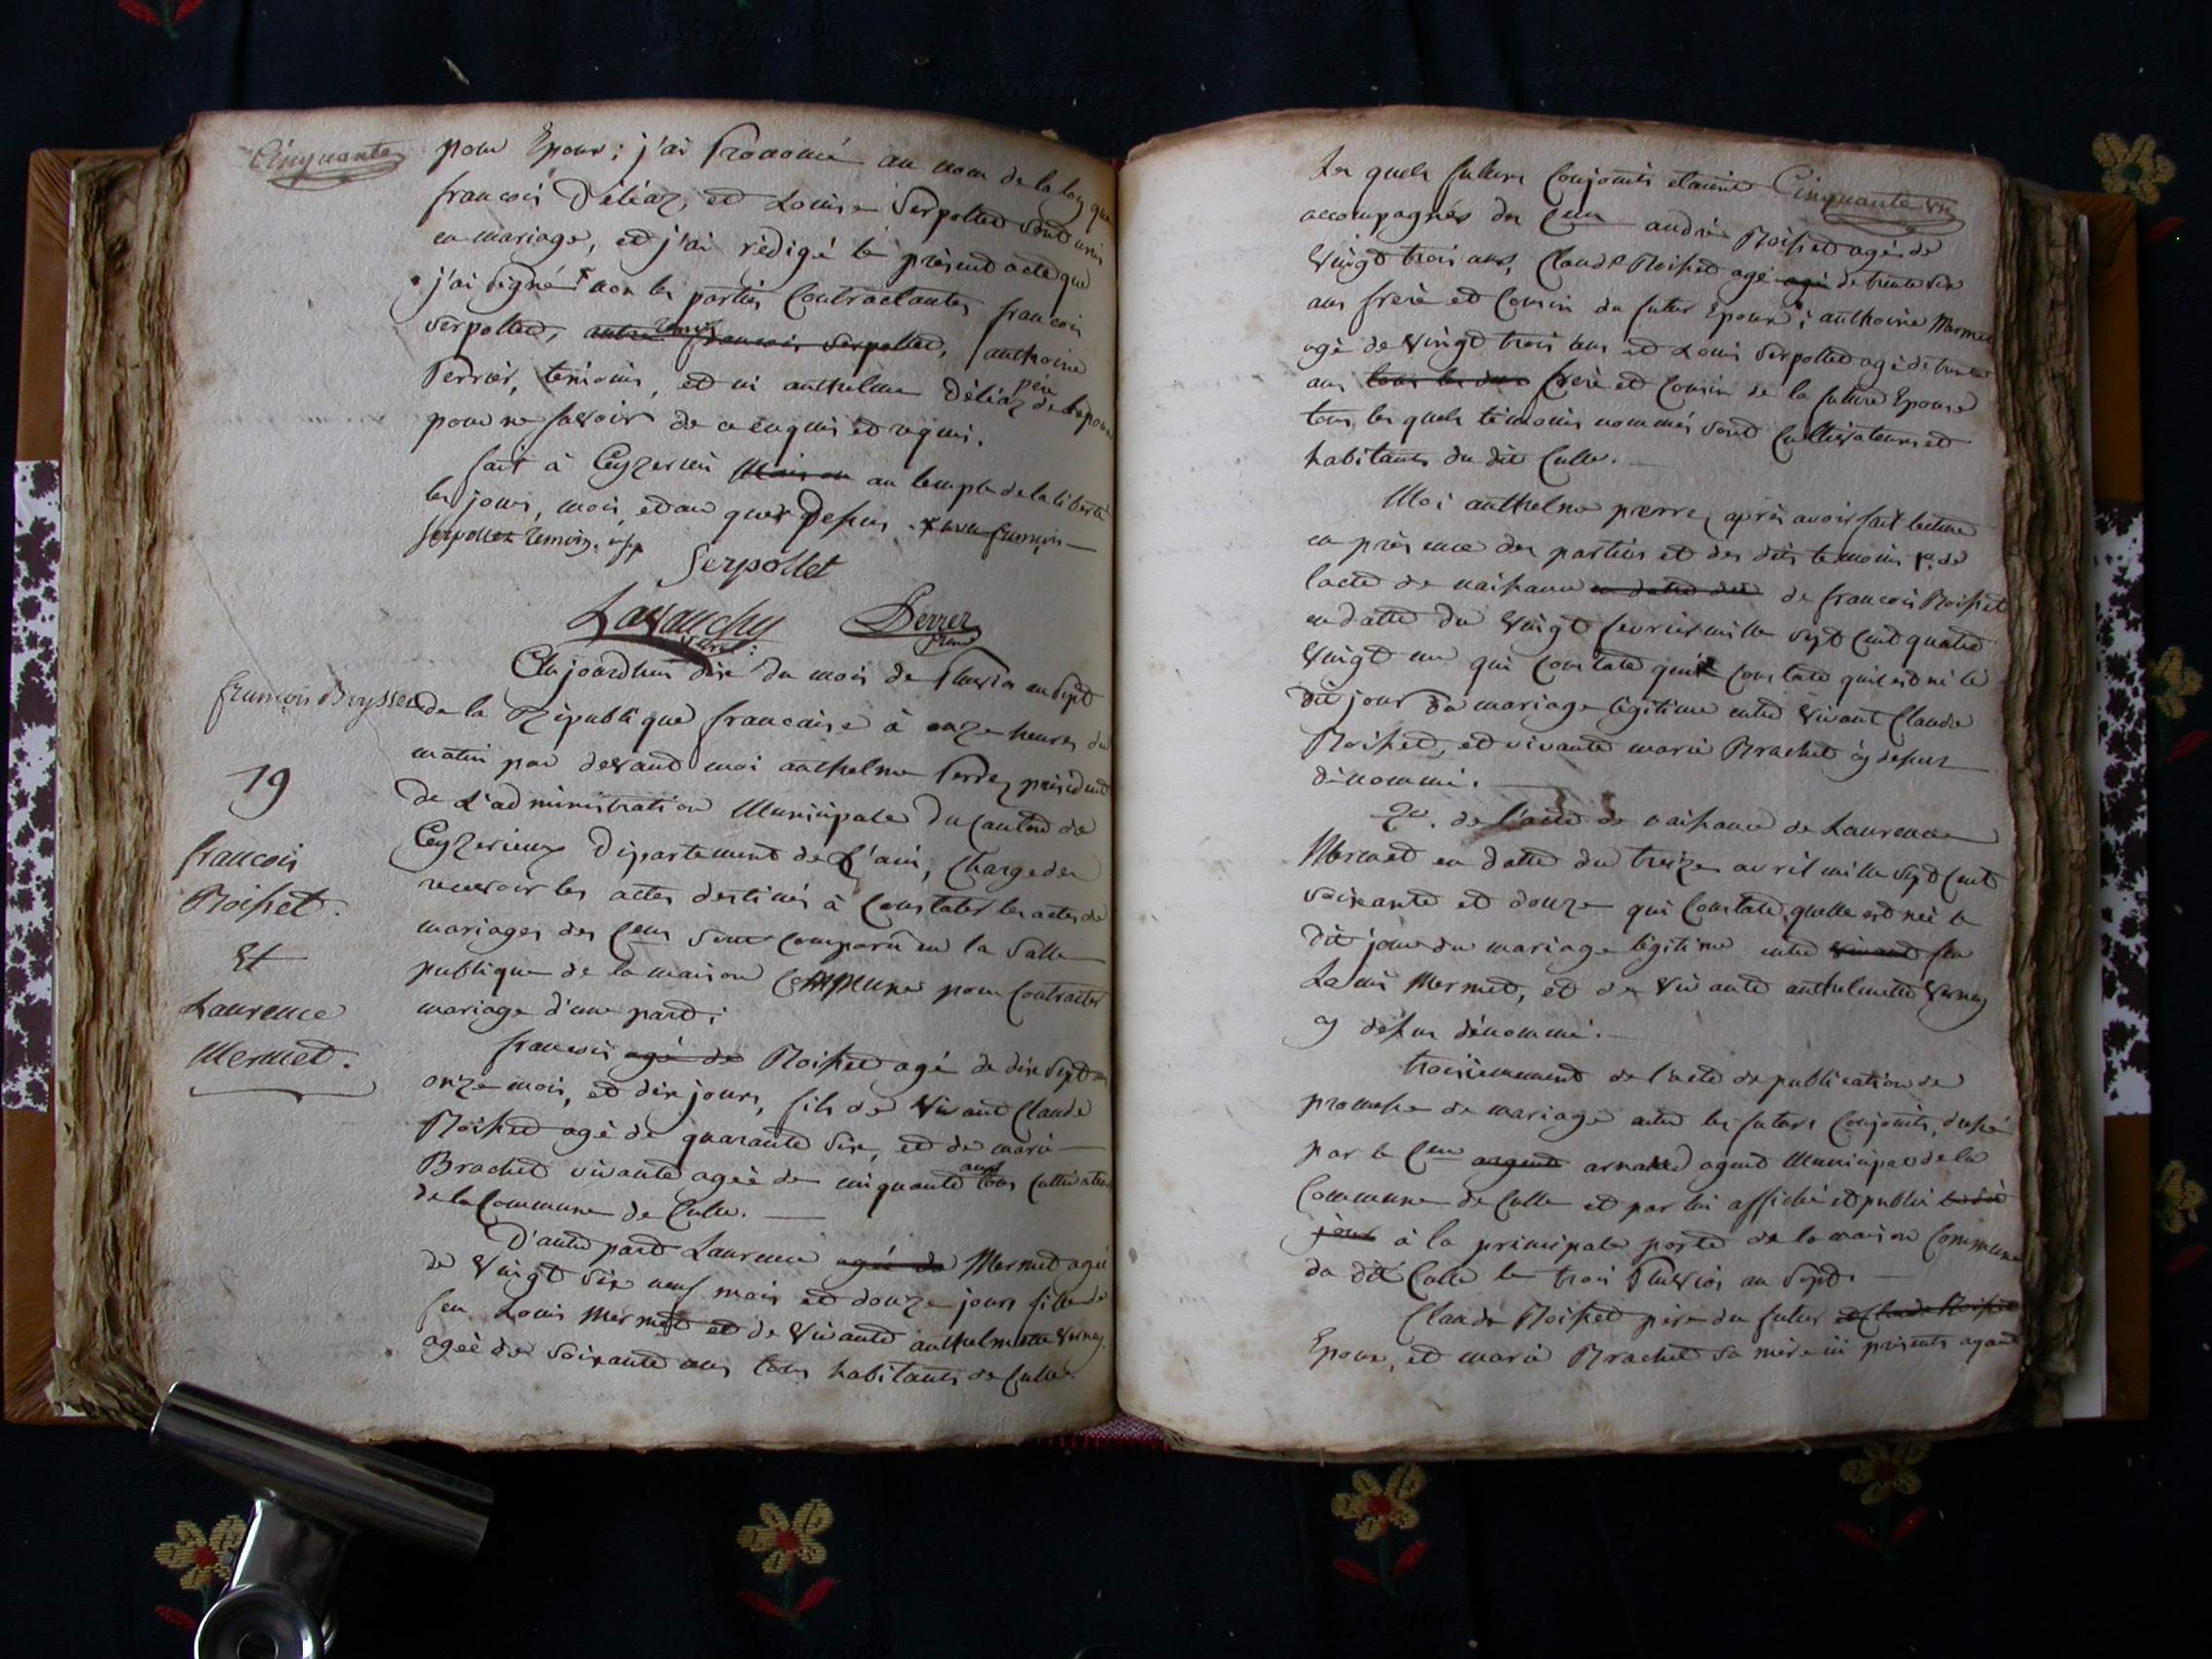 Cinquante
pour Epoux ; j'ai Prononcé au nom de la loy que
francois Déléaz, et Louise Serpollet sont unis
en mariage, et j'ai rédigé le présent acte que
j'ai signé non les parties Contractantes francois
Serpollet, autre francois Serpollet, anthoine
Perrier, témoins, et ni anthelme Déléaz père de lepoux
pour ne savoir de ce enquis et requis.
fait à Ceyzerieu Maison au temple de la liberté
les jours, mois, et an que Dessus.
Serpollet temoin
Serpollet
Lavanchy Perrez
secret:
Aujourdhui dix du mois de Pluviose an Sept
francois Beyssed
de la République francaise à onze heures du
matin par devant moi anthelme Perrez président
de L'administration Municipale du Canton de
Ceyzerieux Département de L'ain, Chargé de
recevoir les actes destinés à Constater les actes de
mariages des Cens sont comparu en la Salle
publique de la maison Commune pour Contracter
mariage d'une part ;
19
francois
Roisset.
Et
Laurence
Mermet.
francois agé de Roissed agé de dix Sept ans
onze mois, et dix jours, fils de vivant Claude
Roissed agé de quarante Six, et de marie
Brachet vivante agée de cinquante ans tous cultivateurs
de la Commune de Culle.
D'autre part Laurence agée de Mermet agée
de vingt Six neuf mois et douze jours fille de
feu Louis Mermet et de vivante anthelmette Vernay
agée de Soixante ans tous habitants de Culle
Les quels futurs Conjoints etaient Cinquante un
accompagnés des Cens andré Roisset agé de
vingt trois ans, Claude Roisset agé agé de trente Six
ans frere et Cousin du futur Epoux ; anthoine Mermet
agé de vingt trois ans et Louis Serpollet agé de trente
ans tous les deux frere et Cousin de la future Epouse
tous les quels témoins nommés sont Cultivateurs et
habitants du dit Culle.
Moi anthelme perrez après avoir fait lecture
en présence des parties et des dits temoins 1o. de
lacte de naissance en datte du de francois Roisset
en datte du vingt fevrier mille sept cent quatre
vingt un qui Constate qui Constate quil est né le
dit jour du mariage légitime entre vivant Claude
Roisset, et vivante marie Brachet cy dessus
dénommé.
2o. de l'acte de naissance de Laurence
Mermet en datte du treize avril mille Sept Cent
soixante et douze qui Constate quelle est née le
dit jour du mariage légitime entre vivant feu
Louis Mermet, et de vivante anthelmette Vernay
cy dessus dénommé.
troisiemement de l'acte de publication de
promesse de mariage entre les futurs Conjoints, dressé
par le Cen argent arnaud agent Municipal de la
Commune de Culle et par lui affiché et publié le dit
jour à la principale porte de la maison Commune
du dit Culle le trois Pluviôs an Sept.
Claude Roisset père du futur et Claude Roisset
Epoux, et marie Brachet sa mère ici présents ayant